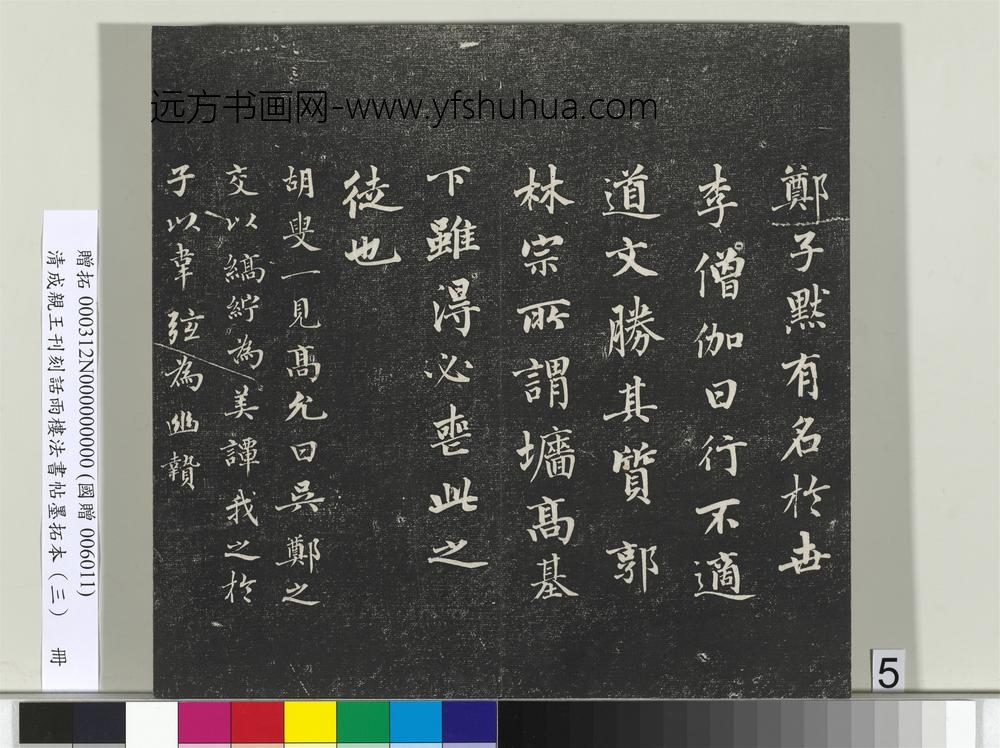 远方书画网-www.yfshuhua.com
鄭子默有名於世
李僧伽曰行不適
道文勝其質郭
林宗所謂墻高基
下雖得必喪此之
徒也
胡叟一見高允曰吳鄭之
交以縞紵為美譚我之於
子以韋弦為幽贄
贈拓 000312N000000000 (國贈 006011)
清成親王刊刻話雨樓法書帖墨拓本（三） 冊
5